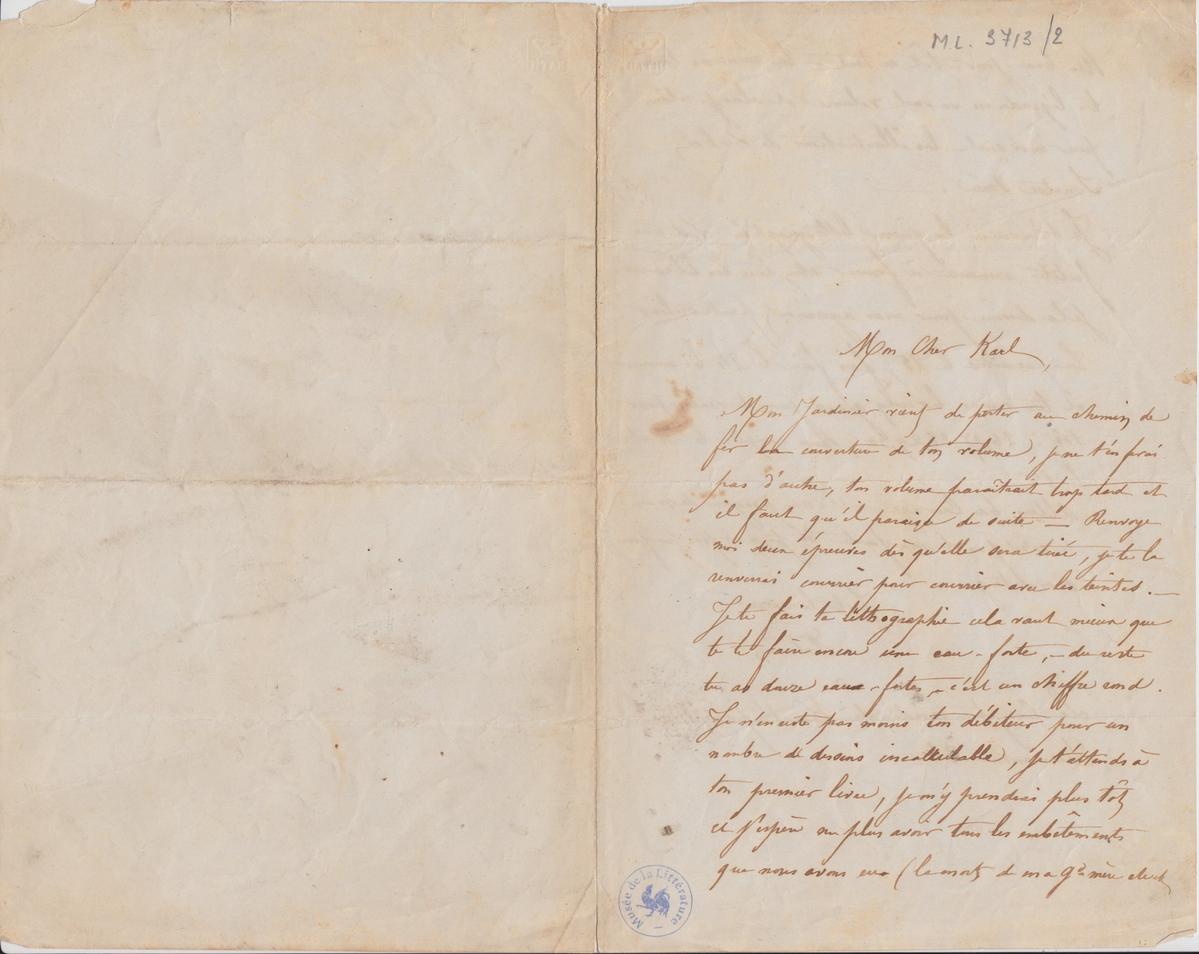 ML. 3713/2
Mon Cher Karl,
Mon Jardinier vient de porter au chemin de
fer la couverture de ton volume, je ne t'en ferai
pas d'autre, ton volume paraîtrait trop tard et
il faut qu'il paraisse de suite — Renvoye
moi deux épreuves dès qu'elle sera tirée, je te la
renverrai courrier pour courrier avec les teintes. —
Je te fais ta lithographie cela vaut mieux que
te faire encore une eau-forte, - du reste
tu as douze eaux-fortes, - c'est un chiffre rond.
Je n'en reste pas moins ton débiteur pour un
nombre de dessins incalculable, je t'attends à
ton premier livre, je m'y prendrai plus tôt
et j'espère ne plus avoir tous les embêtements
que nous avons eus (la mort de ma gde mère etc etc
Musée de la Littérature